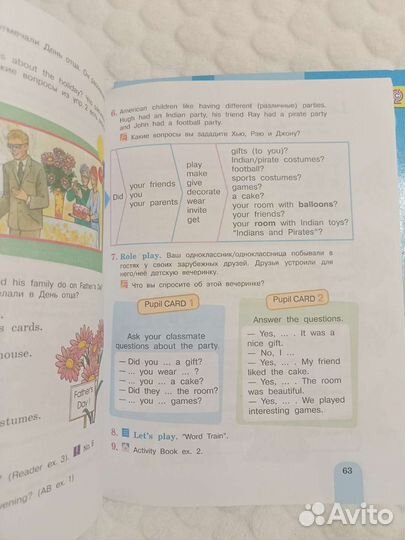 отмечали День отца. Он
about the holiday?
вопросы из упр. 2
his family do on Father's
делали в День отца?
cards.
house.
Father's
Day!
costumes.
(Reader ex. 3). No. 6
evening? (AB ex. 1)
6. American children like having different (различные) parties.
Hugh had an Indian party, his friend Ray had a pirate party
and John had a football party.
Какие вопросы вы зададите Хью, Раю и Джону?
Did
your friends
you
your parents
play
make
give
decorate
wear
invite
get
gifts (to you)?
Indian/pirate costumes?
football?
sports costumes?
games?
a cake?
your room with balloons?
your friends?
your room with Indian toys?
"Indians and Pirates"?
7. Role play. Ваш одноклассник/одноклассница побывали в
гостях у своих зарубежных друзей. Друзья устроили для
него/неё детскую вечеринку.
Что вы спросите об этой вечеринке?
Pupil CARD 1
Ask your classmate
questions about the party.
— Did you ... a gift?
— ... you wear ... ?
— ... you ... a cake?
— Did they ... the room?
— ... you ... games?
Pupil CARD 2
Answer the questions.
— Yes, ... . It was a
nice gift.
— No, I ... .
— Yes, ... . My friend
liked the cake.
— Yes, ... . The room
was beautiful.
— Yes, ... . We played
interesting games.
8. Let's play. "Word Train".
9. Activity Book ex. 2.
63
Avito